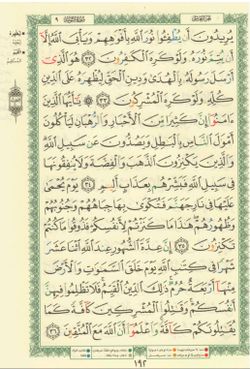 الجزء العاشر سورة التوبة ٩
يُرِيدُونَ أَن يُطْفِـُٔوا۟ نُورَ ٱللَّهِ بِأَفْوَٰهِهِمْ وَيَأْبَى ٱللَّهُ إِلَّآ
أَن يُتِمَّ نُورَهُۥ وَلَوْ كَرِهَ ٱلْكَٰفِرُونَ ٣٢ هُوَ ٱلَّذِىٓ
أَرْسَلَ رَسُولَهُۥ بِٱلْهُدَىٰ وَدِينِ ٱلْحَقِّ لِيُظْهِرَهُۥ عَلَى ٱلدِّينِ
كُلِّهِۦ وَلَوْ كَرِهَ ٱلْمُشْرِكُونَ ٣٣ يَٰٓأَيُّهَا ٱلَّذِينَ
ءَامَنُوٓا۟ إِنَّ كَثِيرًا مِّنَ ٱلْأَحْبَارِ وَٱلرُّهْبَانِ لَيَأْكُلُونَ
أَمْوَٰلَ ٱلنَّاسِ بِٱلْبَٰطِلِ وَيَصُدُّونَ عَن سَبِيلِ ٱللَّهِ
وَٱلَّذِينَ يَكْنِزُونَ ٱلذَّهَبَ وَٱلْفِضَّةَ وَلَا يُنفِقُونَهَا
فِى سَبِيلِ ٱللَّهِ فَبَشِّرْهُم بِعَذَابٍ أَلِيمٍ ٣٤ يَوْمَ يُحْمَىٰ
عَلَيْهَا فِى نَارِ جَهَنَّمَ فَتُكْوَىٰ بِهَا جِبَاهُهُمْ وَجُنُوبُهُمْ
وَظُهُورُهُمْ هَٰذَا مَا كَنَزْتُمْ لِأَنفُسِكُمْ فَذُوقُوا۟ مَا كُنتُمْ
تَكْنِزُونَ ٣٥ إِنَّ عِدَّةَ ٱلشُّهُورِ عِندَ ٱللَّهِ ٱثْنَا عَشَرَ
شَهْرًا فِى كِتَٰبِ ٱللَّهِ يَوْمَ خَلَقَ ٱلسَّمَٰوَٰتِ وَٱلْأَرْضَ
مِنْهَآ أَرْبَعَةٌ حُرُمٌ ذَٰلِكَ ٱلدِّينُ ٱلْقَيِّمُ فَلَا تَظْلِمُوا۟ فِيهِنَّ
أَنفُسَكُمْ وَقَٰتِلُوا۟ ٱلْمُشْرِكِينَ كَآفَّةً كَمَا
يُقَٰتِلُونَكُمْ كَآفَّةً وَٱعْلَمُوٓا۟ أَنَّ ٱللَّهَ مَعَ ٱلْمُتَّقِينَ ٣٦
١٩٢